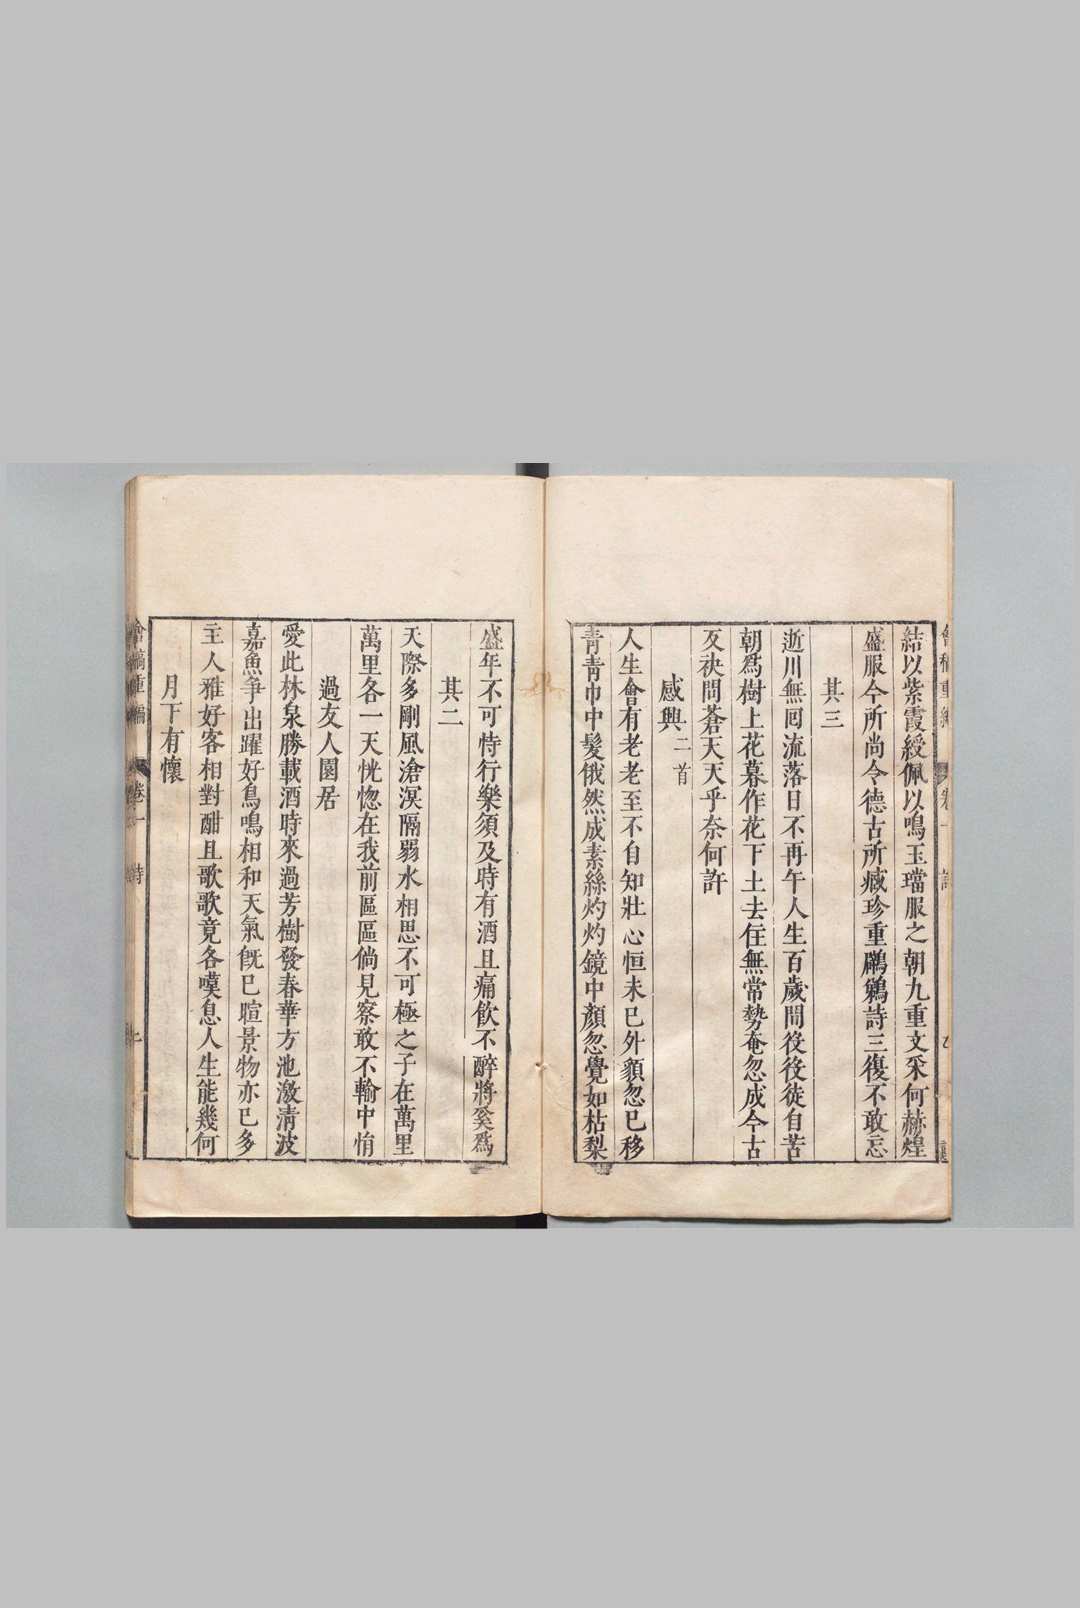 結以紫霞綬佩以鳴玉璫服之朝九重文采何赫煌
盛服今所尚令德古所臧珍重鸊鵜詩三復不敢忘
其三
逝川無囘流落日不再午人生百歲間役役徒自苦
朝爲樹上花暮作花下土去住無常勢奄忽成今古
反袂問蒼天天乎奈何許
感興二首
人生會有老老至不自知壯心恒未已外貌忽已移
青青巾中髮俄然成素絲灼灼鏡中顏忽覺如枯梨
盛年不可恃行樂須及時有酒且痛飲不醉將奚爲
其二
天際多剛風滄溟隔弱水相思不可極之子在萬里
萬里各一天恍惚在我前區區倘見察敢不輸中悁
過友人園居
愛此林泉勝載酒時來過芳樹發春華方池激清波
嘉魚爭出躍好鳥鳴相和天氣旣已暄景物亦已多
主人雅好客相對酣且歌歌竟各嘆息人生能幾何
月下有懷
會稿重編 卷一 詩 七